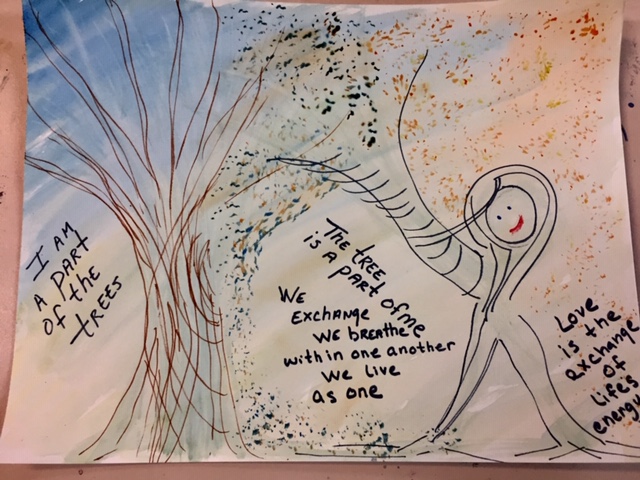 I AM
A PART
of the
TREES
The TREE
is A PART of me
WE
EXCHANGE
WE BREATHE
within one another
We live
as one
Love
is the
exchange
of
Life's
energy